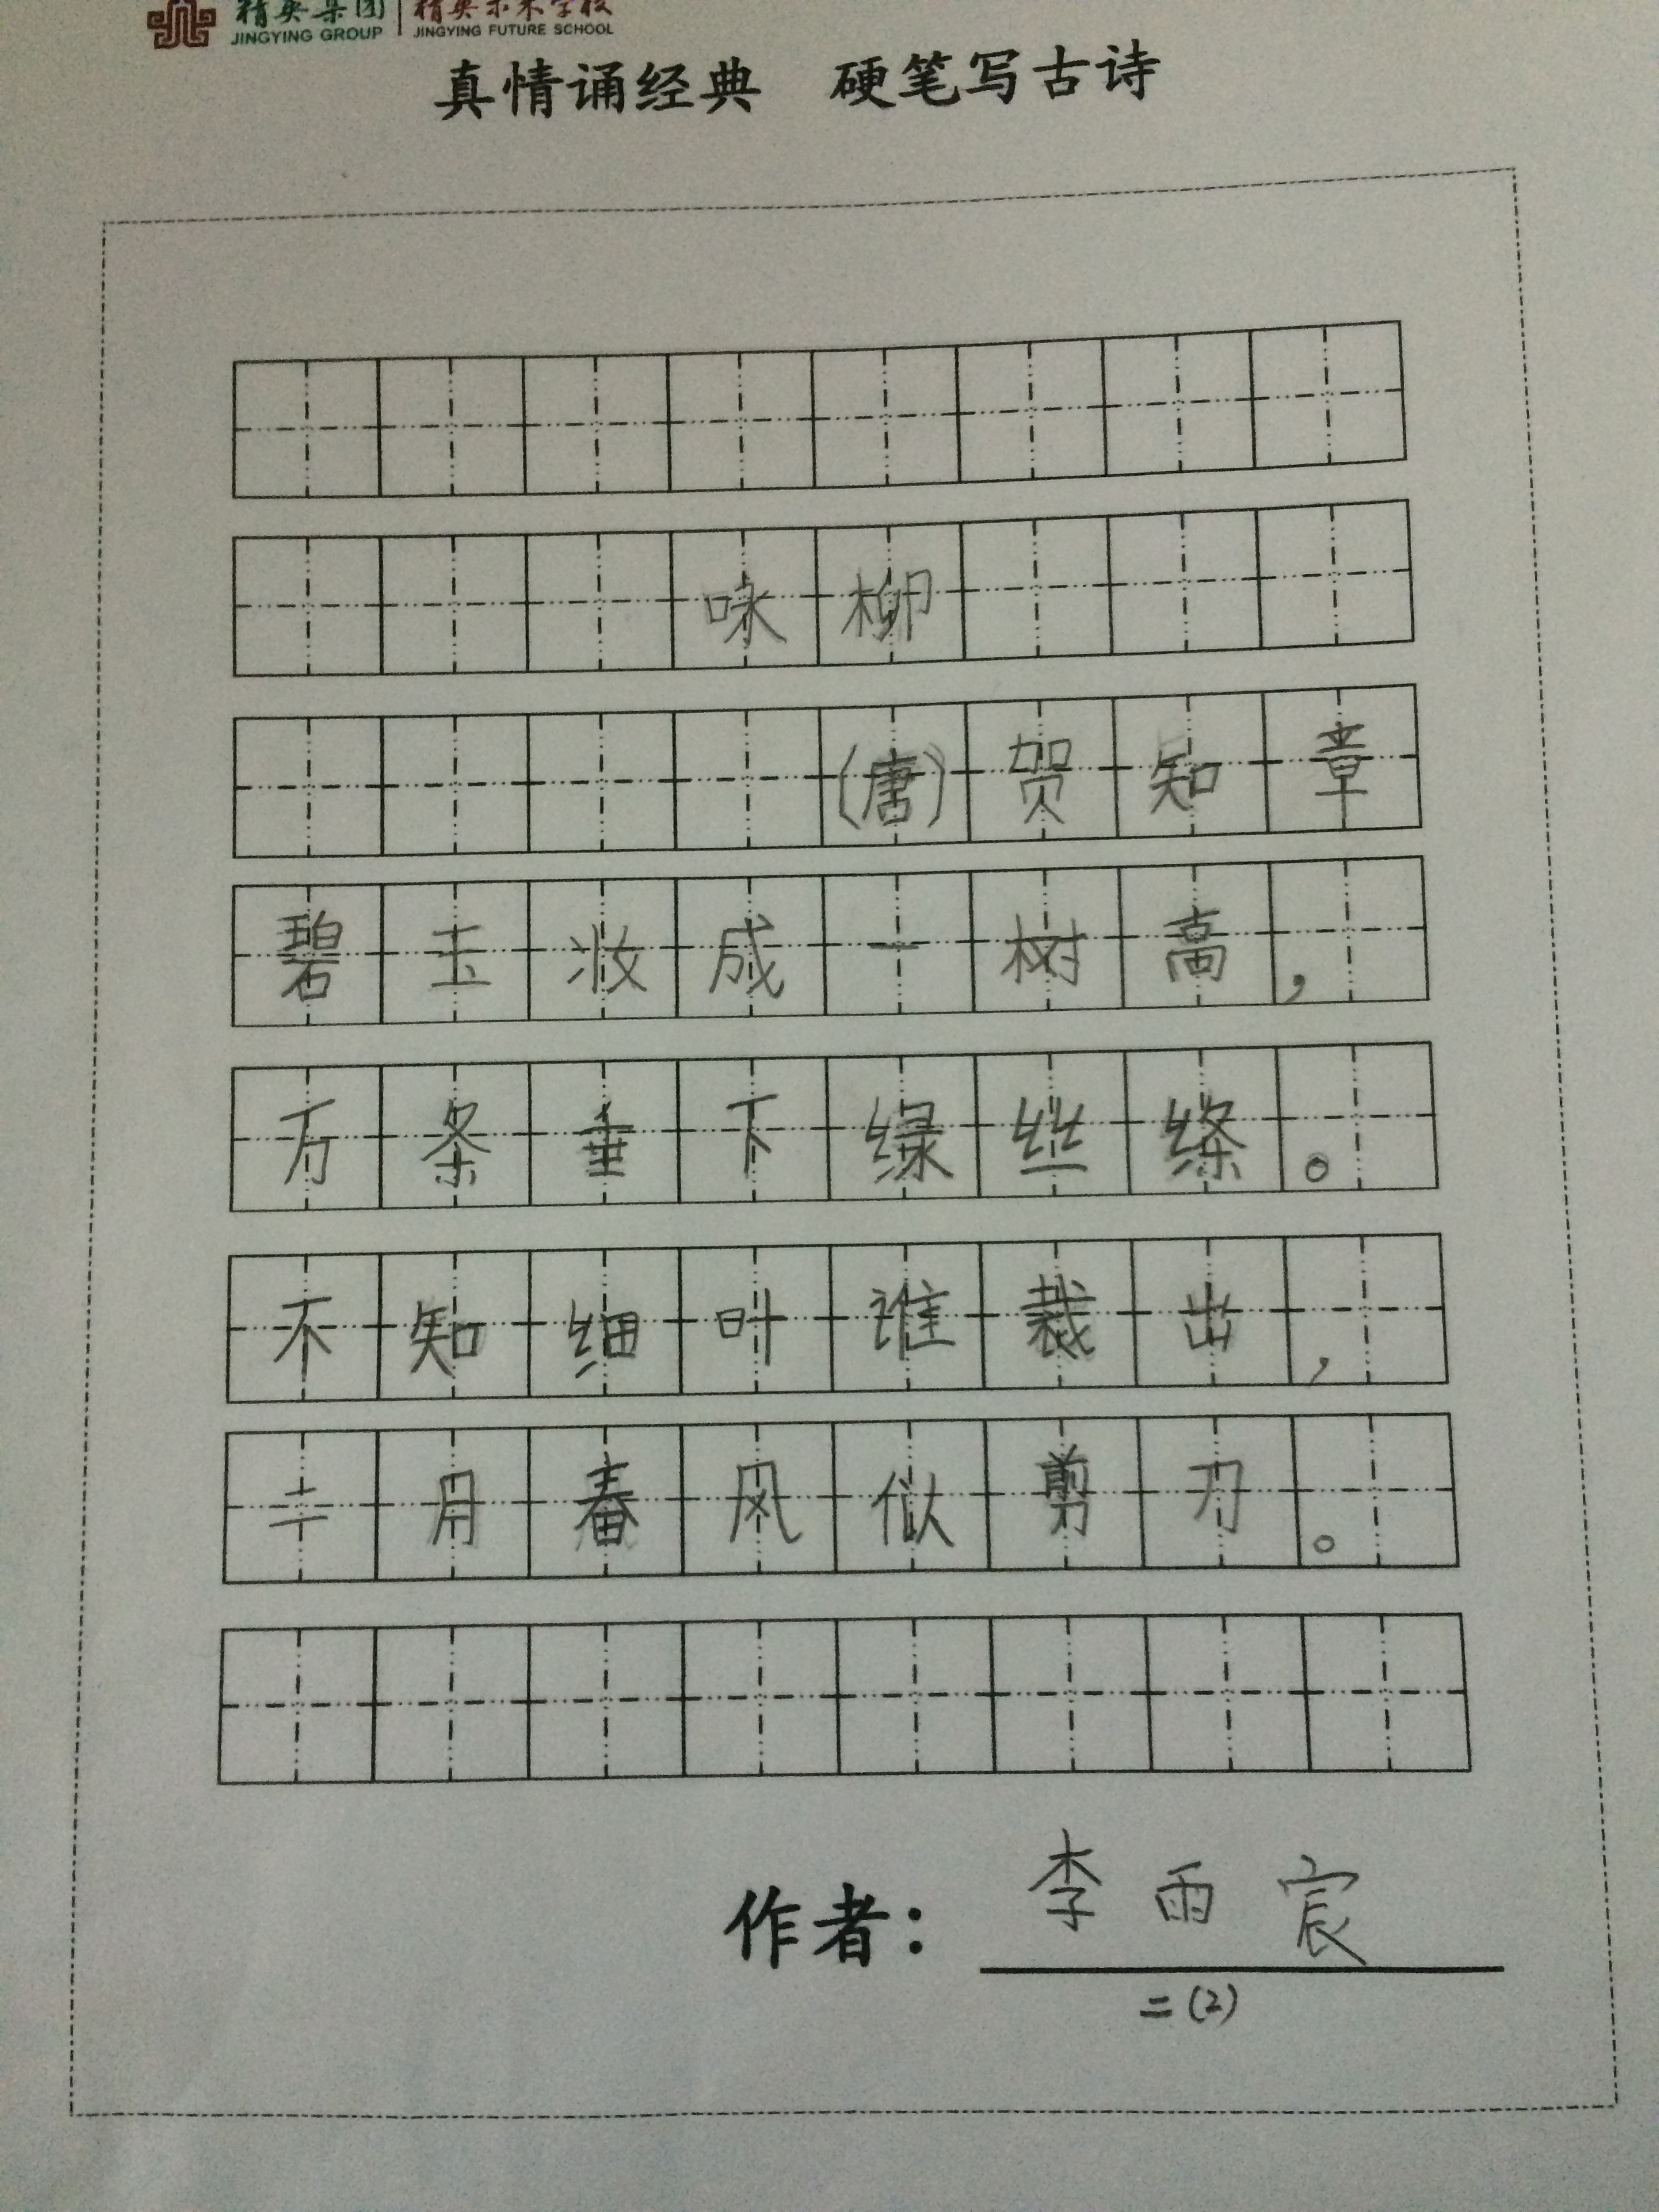 精英集团 精英未来学校
JINGYING GROUP JINGYING FUTURE SCHOOL
真情诵经典 硬笔写古诗
咏柳
(唐)贺知章
碧玉妆成一树高,
万条垂下绿丝绦。
不知细叶谁裁出,
二月春风似剪刀。
作者: 李雨宸
二(2)